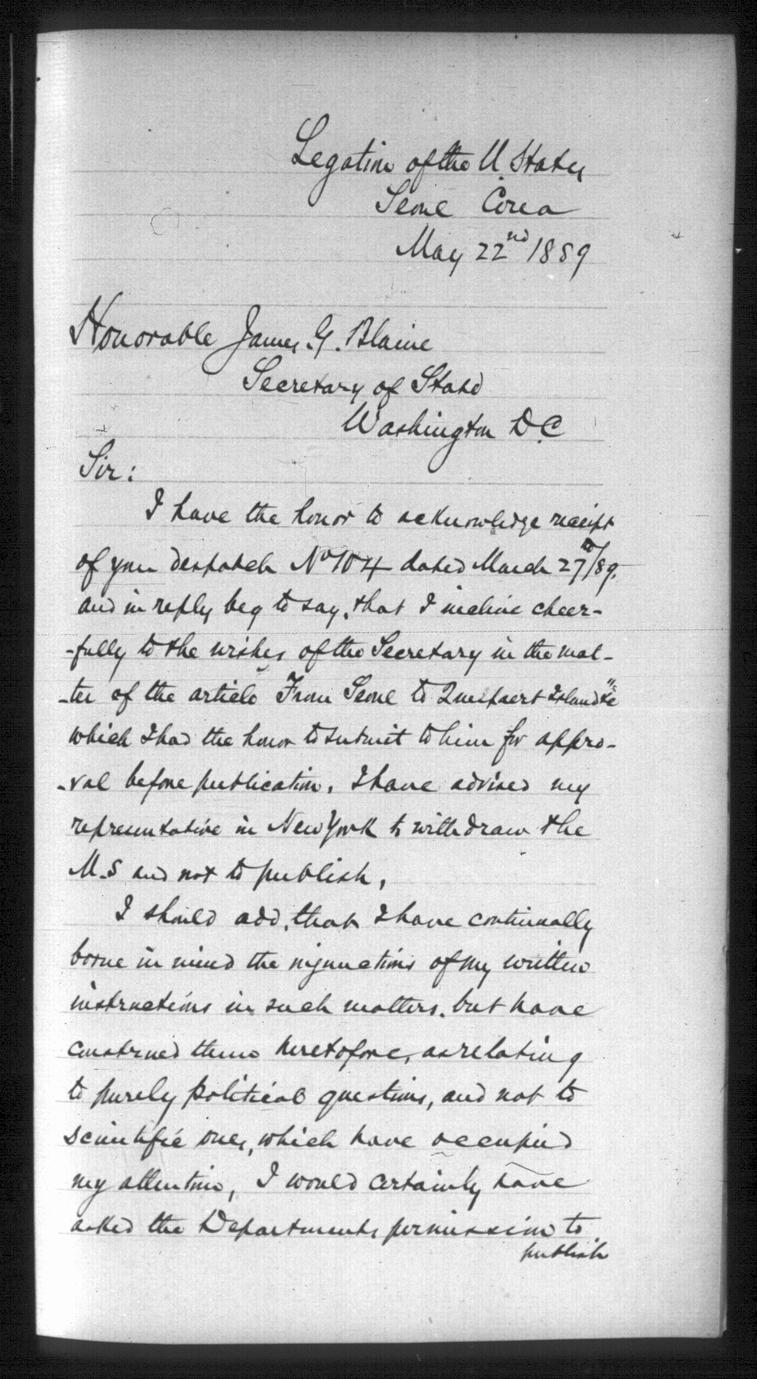 Legation of the U. States
Seoul Corea
May 22nd 1889
Honorable James G. Blaine
Secretary of State
Washington D.C
Sir:
I have the honor to acknowledge receipt
of your despatch No 104 dated March 27th/89.
and in reply beg to say, that I incline cheer-
-fully to the wishes of the Secretary in the mat-
-ter of the article From Seoul to Quelpaert Island"&c
which I had the honor to submit to him for appro-
-val before publication. I have advised my
representative in New York to withdraw the
M.S and not to publish.
I should add, that I have continually
borne in mind the injunctions of my written
instructions in such matters, but have
construed them heretofore, as relating
to purely political questions, and not to
scientific ones, which have occupied
my attention, I would certainly have
asked the Departments permission to
publish